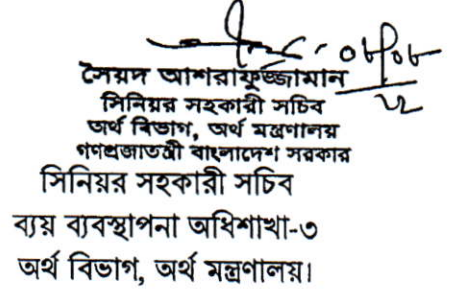 ০৮/০৮
১২
সৈয়দ আশরাফুজ্জামান
সিনিয়র সহকারী সচিব
অর্থ বিভাগ, অর্থ মন্ত্রণালয়
গণপ্রজাতন্ত্রী বাংলাদেশ সরকার
সিনিয়র সহকারী সচিব
ব্যয় ব্যবস্থাপনা অধিশাখা-৩
অর্থ বিভাগ, অর্থ মন্ত্রণালয়।